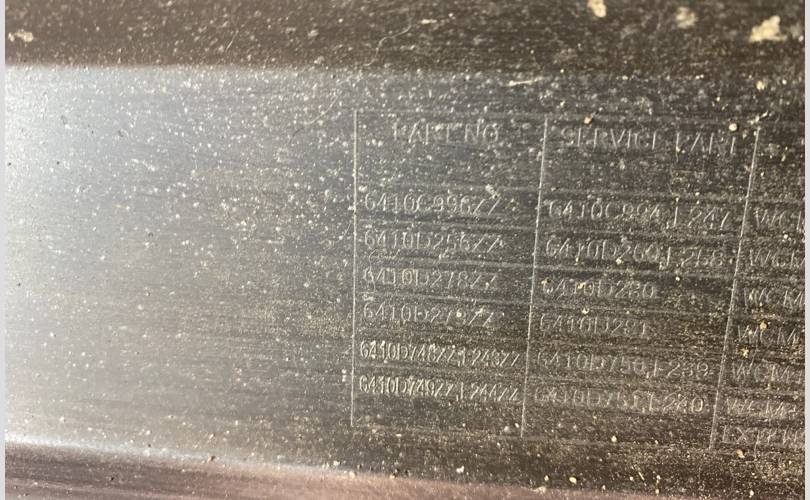 PART NO. SERVICE PART
6410C996ZZ 6410C994,F247 WCM
6410D256ZZ 6410D260,F258 WCM
6410D278ZZ 6410D280 WCM
6410D279ZZ 6410D281 WCM
6410D748ZZ,F243ZZ 6410D750,F239 WCM
6410D749ZZ,F244ZZ 6410D751,F240 WCM